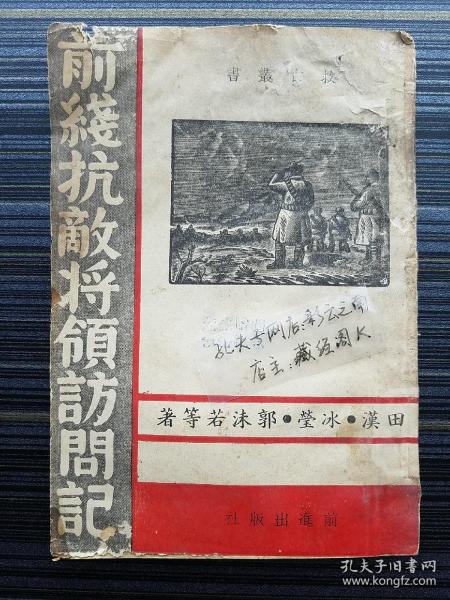 前綫抗敵将領訪問記
救亡叢書
网店：彩云之
店主：藏经阁
田漢・冰瑩・郭沫若等著
前進出版社
孔夫子旧书网
www.kongfz.com